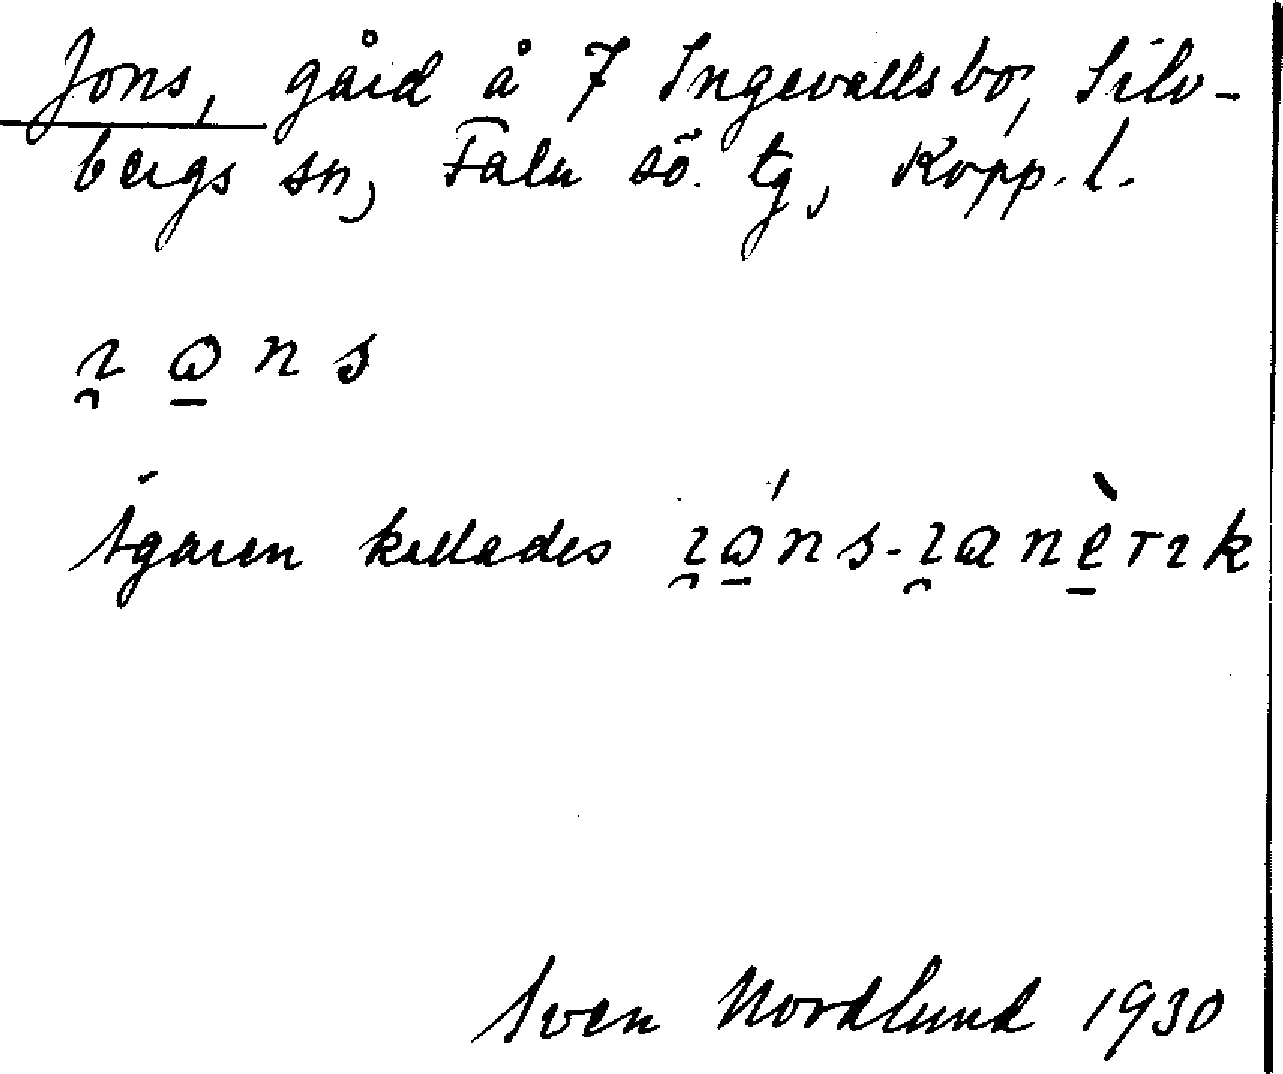 Jons, gård å 7 Ingevallsbo, Silv-
bergs sn, Falu sö. tg, Kopp. l.
ɿ̯ꭷ̱ns
Ägaren kallades ɿ̯ꭷ̱́ns-ɿ̯anè̱rɿk
Sven Nordlund 1930